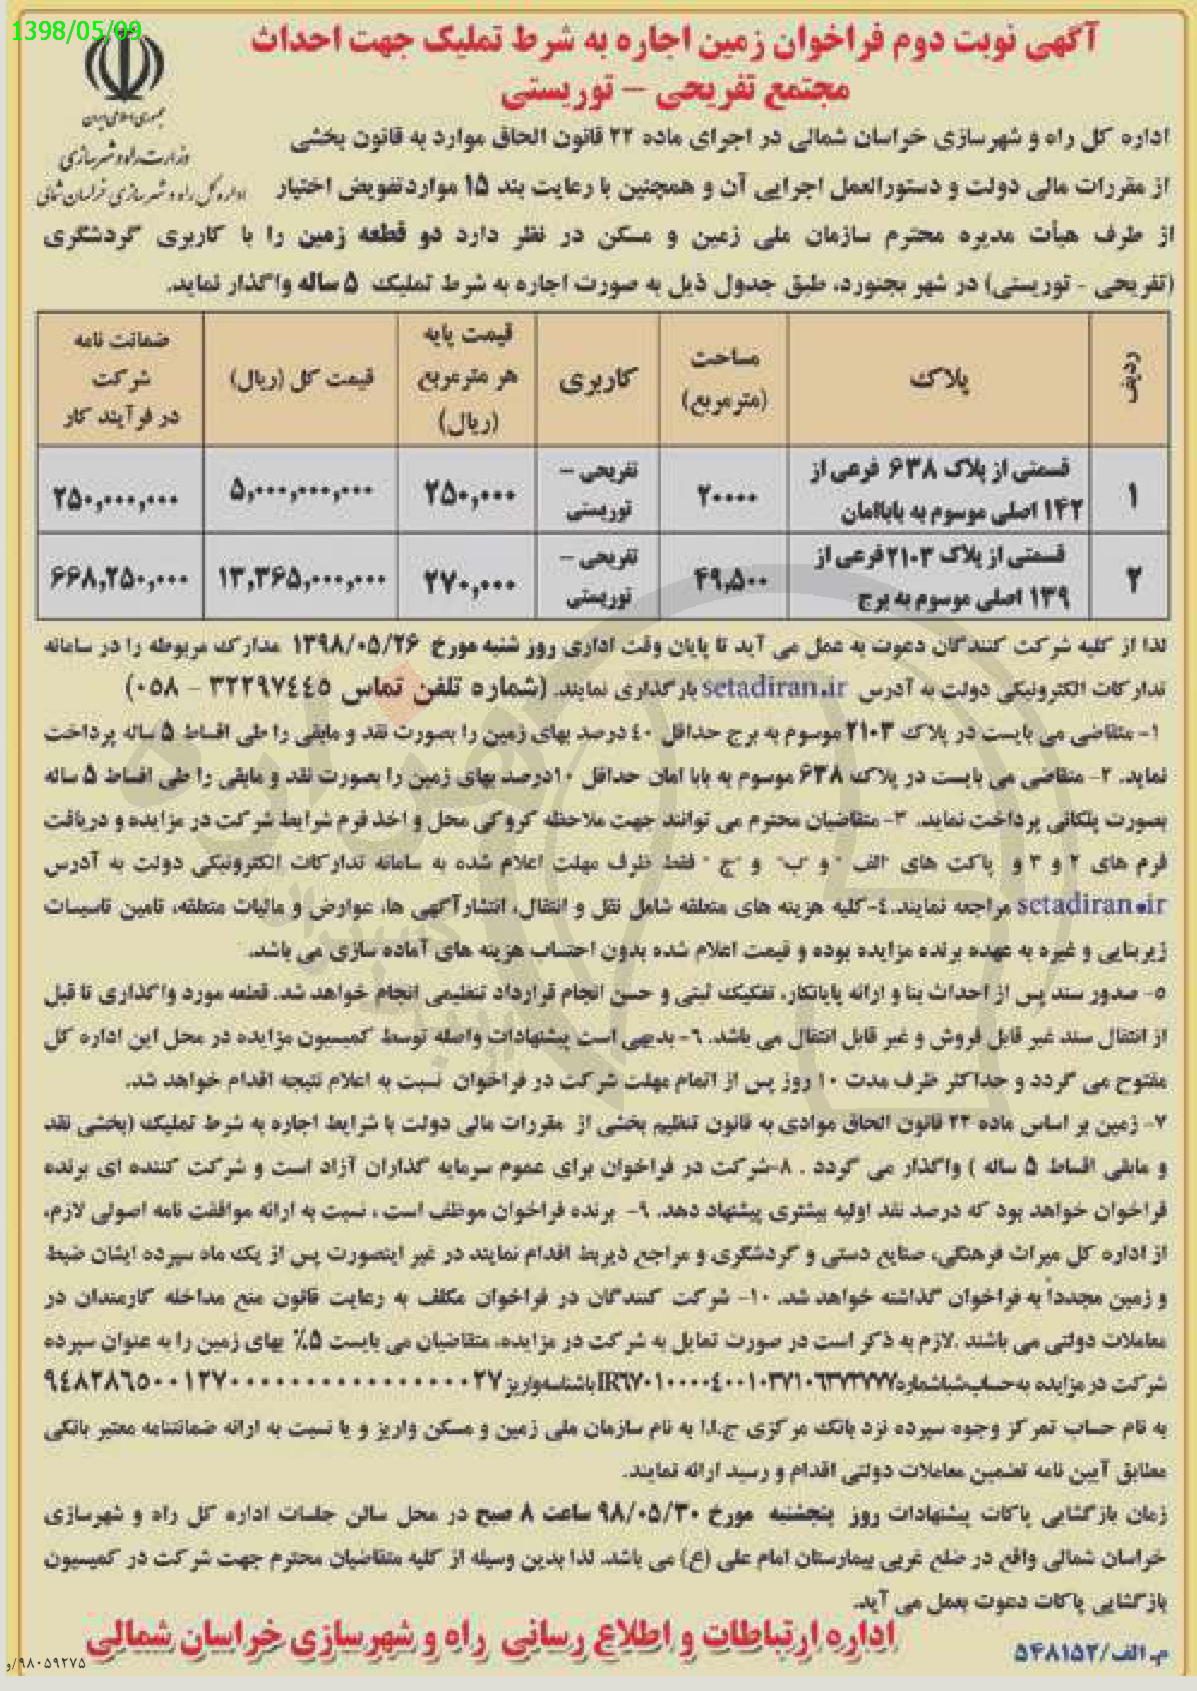 1398/05/09
آگهی نوبت دوم فراخوان زمین اجاره به شرط تملیک جهت احداث
مجتمع تفریحی – توریستی
جمهوری اسلامی ایران
وزارت راه و شهرسازی
اداره کل راه و شهرسازی خراسان شمالی
اداره کل راه و شهرسازی خراسان شمالی در اجرای ماده ۲۲ قانون الحاق موارد به قانون بخشی
از مقررات مالی دولت و دستورالعمل اجرایی آن و همچنین با رعایت بند ۱۵ مواردتفویض اختیار
از طرف هیأت مدیره محترم سازمان ملی زمین و مسکن در نظر دارد دو قطعه زمین را با کاربری گردشگری
(تفریحی - توریستی) در شهر بجنورد، طبق جدول ذیل به صورت اجاره به شرط تملیک ۵ ساله واگذار نماید.
ردیف
پلاک
مساحت (مترمربع)
کاربری
قیمت پایه هر مترمربع (ریال)
قیمت کل (ریال)
ضمانت نامه شرکت در فرآیند کار
۱
قسمتی از پلاک ۶۳۸ فرعی از
۱۴۲ اصلی موسوم به باباامان
۲۰۰۰۰
تفریحی – توریستی
۲۵۰,۰۰۰
۵,۰۰۰,۰۰۰,۰۰۰
۲۵۰,۰۰۰,۰۰۰
۲
قسمتی از پلاک ۲۱۰۳فرعی از
۱۳۹ اصلی موسوم به برج
۴۹,۵۰۰
تفریحی – توریستی
۲۷۰,۰۰۰
۱۳,۳۶۵,۰۰۰,۰۰۰
۶۶۸,۲۵۰,۰۰۰
لذا از کلیه شرکت کنندگان دعوت به عمل می آید تا پایان وقت اداری روز شنبه مورخ ۱۳۹۸/۰۵/۲۶ مدارک مربوطه را در سامانه
تدارکات الکترونیکی دولت به آدرس setadiran.ir بارگذاری نمایند. (شماره تلفن تماس ۳۲۲۹۷٤٤۵ – ۰۵۸)
۱- متقاضی می بایست در پلاک ۲۱۰۳ موسوم به برج حداقل ٤۰ درصد بهای زمین را بصورت نقد و مابقی را طی اقساط ۵ ساله پرداخت
نماید. ۲- متقاضی می بایست در پلاک ۶۳۸ موسوم به بابا امان حداقل ۱۰درصد بهای زمین را بصورت نقد و مابقی را طی اقساط ۵ ساله
بصورت پلکانی پرداخت نماید. ۳- متقاضیان محترم می توانند جهت ملاحظه کروکی محل و اخذ فرم شرایط شرکت در مزایده و دریافت
فرم های ۲ و ۳ و پاکت های "الف " و "ب" و "ج " فقط ظرف مهلت اعلام شده به سامانه تدارکات الکترونیکی دولت به آدرس
setadiran.ir مراجعه نمایند.٤-کلیه هزینه های متعلقه شامل نقل و انتقال، انتشارآگهی ها، عوارض و مالیات متعلقه، تامین تاسیسات
زیربنایی و غیره به عهده برنده مزایده بوده و قیمت اعلام شده بدون احتساب هزینه های آماده سازی می باشد.
۵- صدور سند پس از احداث بنا و ارائه پایانکار، تفکیک ثبتی و حسن انجام قرارداد تنظیمی انجام خواهد شد. قطعه مورد واگذاری تا قبل
از انتقال سند غیر قابل فروش و غیر قابل انتقال می باشد. ٦- بدیهی است پیشنهادات واصله توسط کمیسیون مزایده در محل این اداره کل
مفتوح می گردد و حداکثر ظرف مدت ۱۰ روز پس از اتمام مهلت شرکت در فراخوان نسبت به اعلام نتیجه اقدام خواهد شد.
۷- زمین بر اساس ماده ۲۲ قانون الحاق موادی به قانون تنظیم بخشی از مقررات مالی دولت با شرایط اجاره به شرط تملیک (بخشی نقد
و مابقی اقساط ۵ ساله ) واگذار می گردد . ۸-شرکت در فراخوان برای عموم سرمایه گذاران آزاد است و شرکت کننده ای برنده
فراخوان خواهد بود که درصد نقد اولیه بیشتری پیشنهاد دهد. ۹- برنده فراخوان موظف است ، نسبت به ارائه موافقت نامه اصولی لازم،
از اداره کل میراث فرهنگی، صنایع دستی و گردشگری و مراجع ذیربط اقدام نمایند در غیر اینصورت پس از یک ماه سپرده ایشان ضبط
و زمین مجدداً به فراخوان گذاشته خواهد شد. ۱۰- شرکت کنندگان در فراخوان مکلف به رعایت قانون منع مداخله کارمندان در
معاملات دولتی می باشند .لازم به ذکر است در صورت تمایل به شرکت در مزایده، متقاضیان می بایست ۵٪ بهای زمین را به عنوان سپرده
شرکت در مزایده به حساب شبا شماره با شناسه واریز
به نام حساب تمرکز وجوه سپرده نزد بانک مرکزی ج.ا.ا به نام سازمان ملی زمین و مسکن واریز و یا نسبت به ارائه ضمانتنامه معتبر بانکی
مطابق آیین نامه تضمین معاملات دولتی اقدام و رسید ارائه نمایند.
زمان بازگشایی پاکات پیشنهادات روز پنجشنبه مورخ ۹۸/۰۵/۳۰ ساعت ۸ صبح در محل سالن جلسات اداره کل راه و شهرسازی
خراسان شمالی واقع در ضلع غربی بیمارستان امام علی (ع) می باشد. لذا بدین وسیله از کلیه متقاضیان محترم جهت شرکت در کمیسیون
بازگشایی پاکات دعوت بعمل می آید.
اداره ارتباطات و اطلاع رسانی راه و شهرسازی خراسان شمالی
م.الف/۵۴۸۱۵۲
۹۸۰۵۹۲۷۵/و